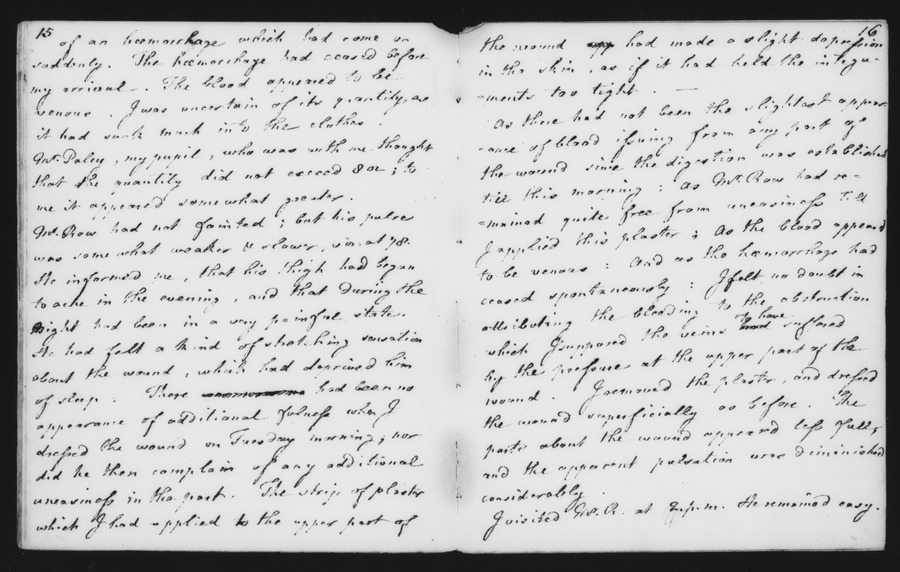 15
of an hæmorrhage which had come on
suddenly. The hæmorrhage had ceased before
my arrival. The blood appeared to be
venous. I was uncertain of its quantity, as
it had sunk much into the clothes.
Mr. Daley, my pupil, who was with me thought
that the quantity did not exceed 8 oz; to
me it appeared somewhat greater.
Mr. Row had not fainted; but his pulse
was somewhat weaker & slower, viz. at 78.
He informed me, that his thigh had began
to ache in the evening, and that during the
night had been in a very painful state.
He had felt a kind of stretching sensation
about the wound, which had deprived him
of sleep. There had been no
appearance of additional fulness when I
dressed the wound on Tuesday morning; nor
did he then complain of any additional
uneasiness in the part. The strip of plaster
which I had applied to the upper part of
16
the wound had made a slight depression
in the skin, as if it had held the integu-
-ments too tight. —
As there had not been the slightest appear-
-ance of blood issuing from any part of
the wound since the digestion was established
till this morning: as Mr. Row had re-
-mained quite free from uneasiness till
I applied this plaster; as the blood appeared
to be venous: and as the hæmorrhage had
ceased spontaneously: I felt no doubt in
attributing the bleeding to the obstruction
which I supposed the veins to have suffered
by the pressure at the upper part of the
wound. I removed the plaster, and dressed
the wound superficially as before. The
parts about the wound appeared less full;
and the apparent pulsation was diminished
considerably.
I visited Mr. R. at 2 p.m. He remained easy.